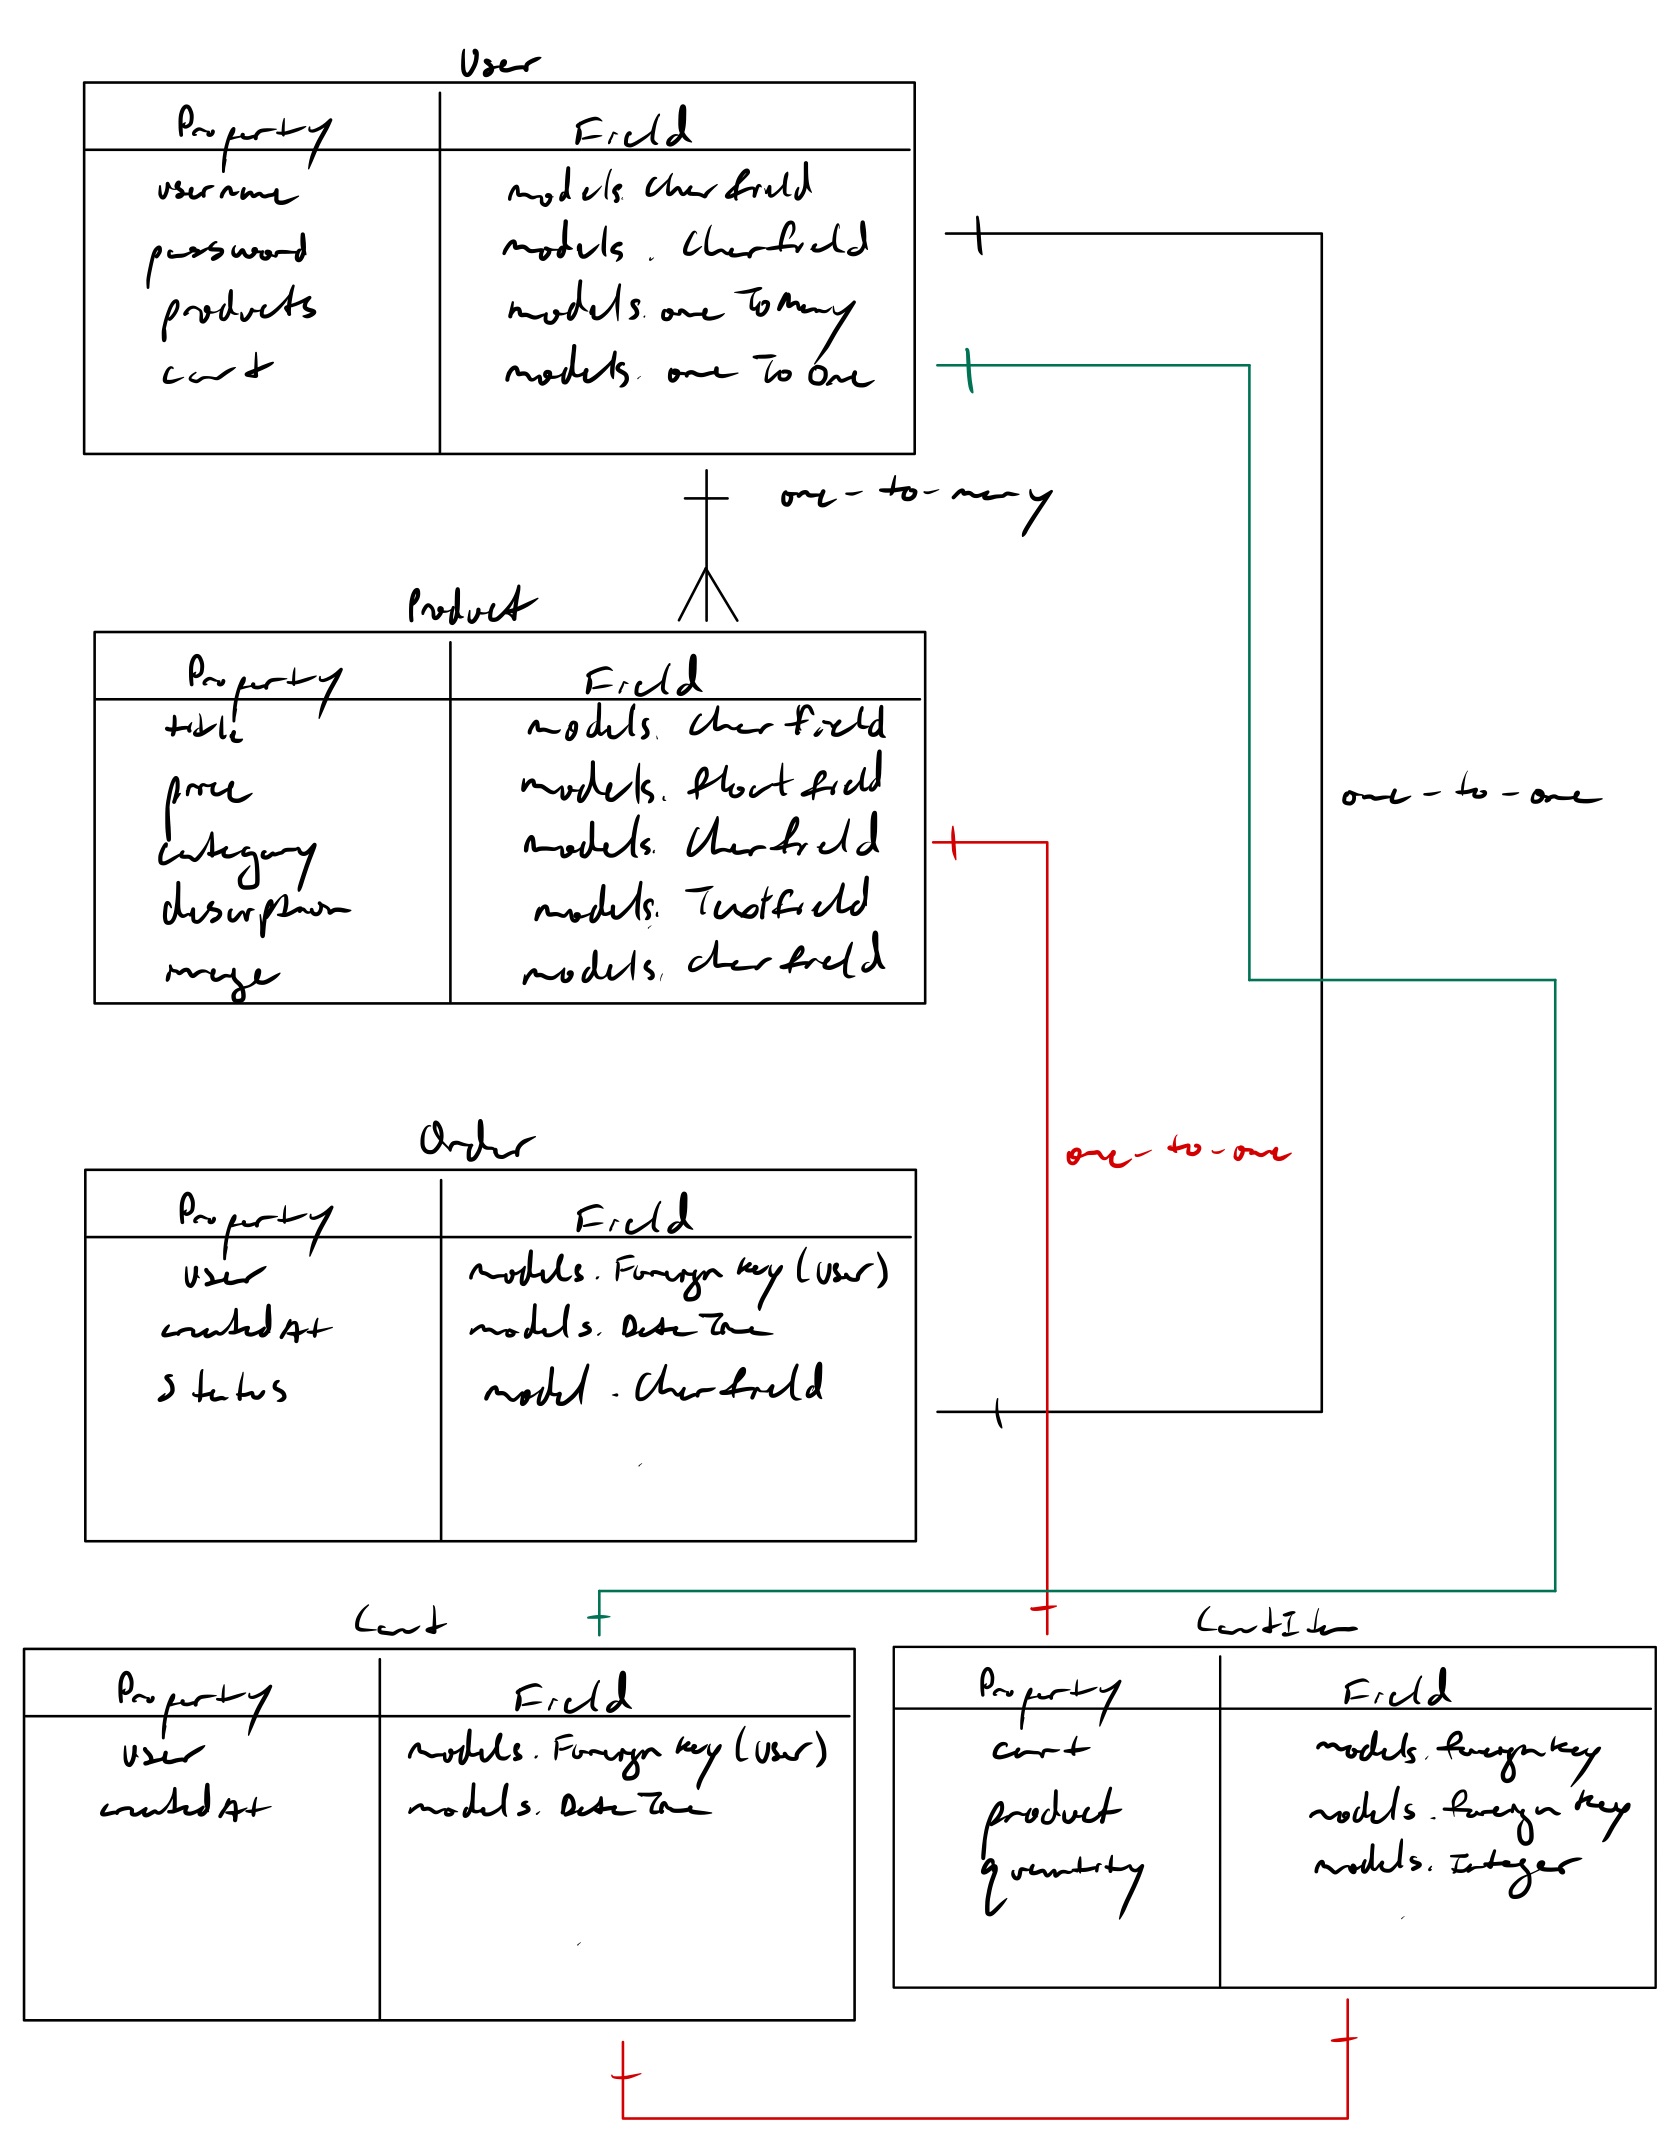 User
Property Field
username models. Charfield
password models. Charfield
products models. one To Many
cart models. one To One
one-to-many
Product
Property Field
title models. Charfield
price models. floatfield
category models. Charfield
description models. Textfield
image models. Charfield
one-to-one
one-to-one
Order
Property Field
user models. Foreign Key (User)
createdAt models. Date Time
status model. Charfield
Cart
Property Field
user models. Foreign Key (User)
createdAt models. Date Time
CartItem
Property Field
cart models. foreign key
product models. foreign key
quantity models. Integer